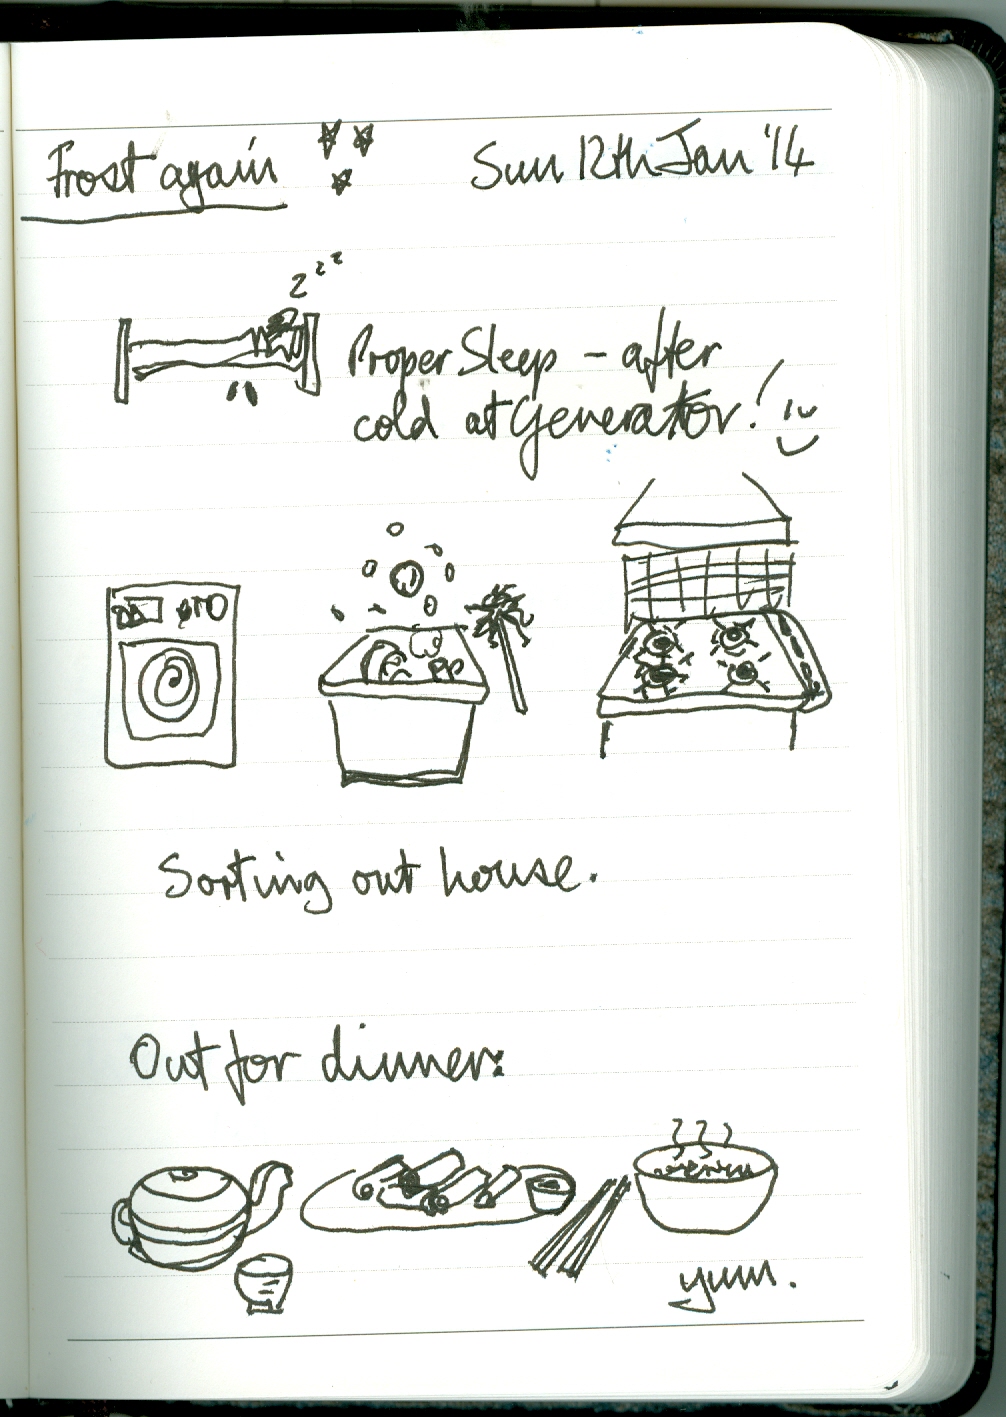 Frost again
Sun 12th Jan '14
z z z
Proper Sleep - after
cold at Generator!
Sorting out house.
Out for dinner:
yum.